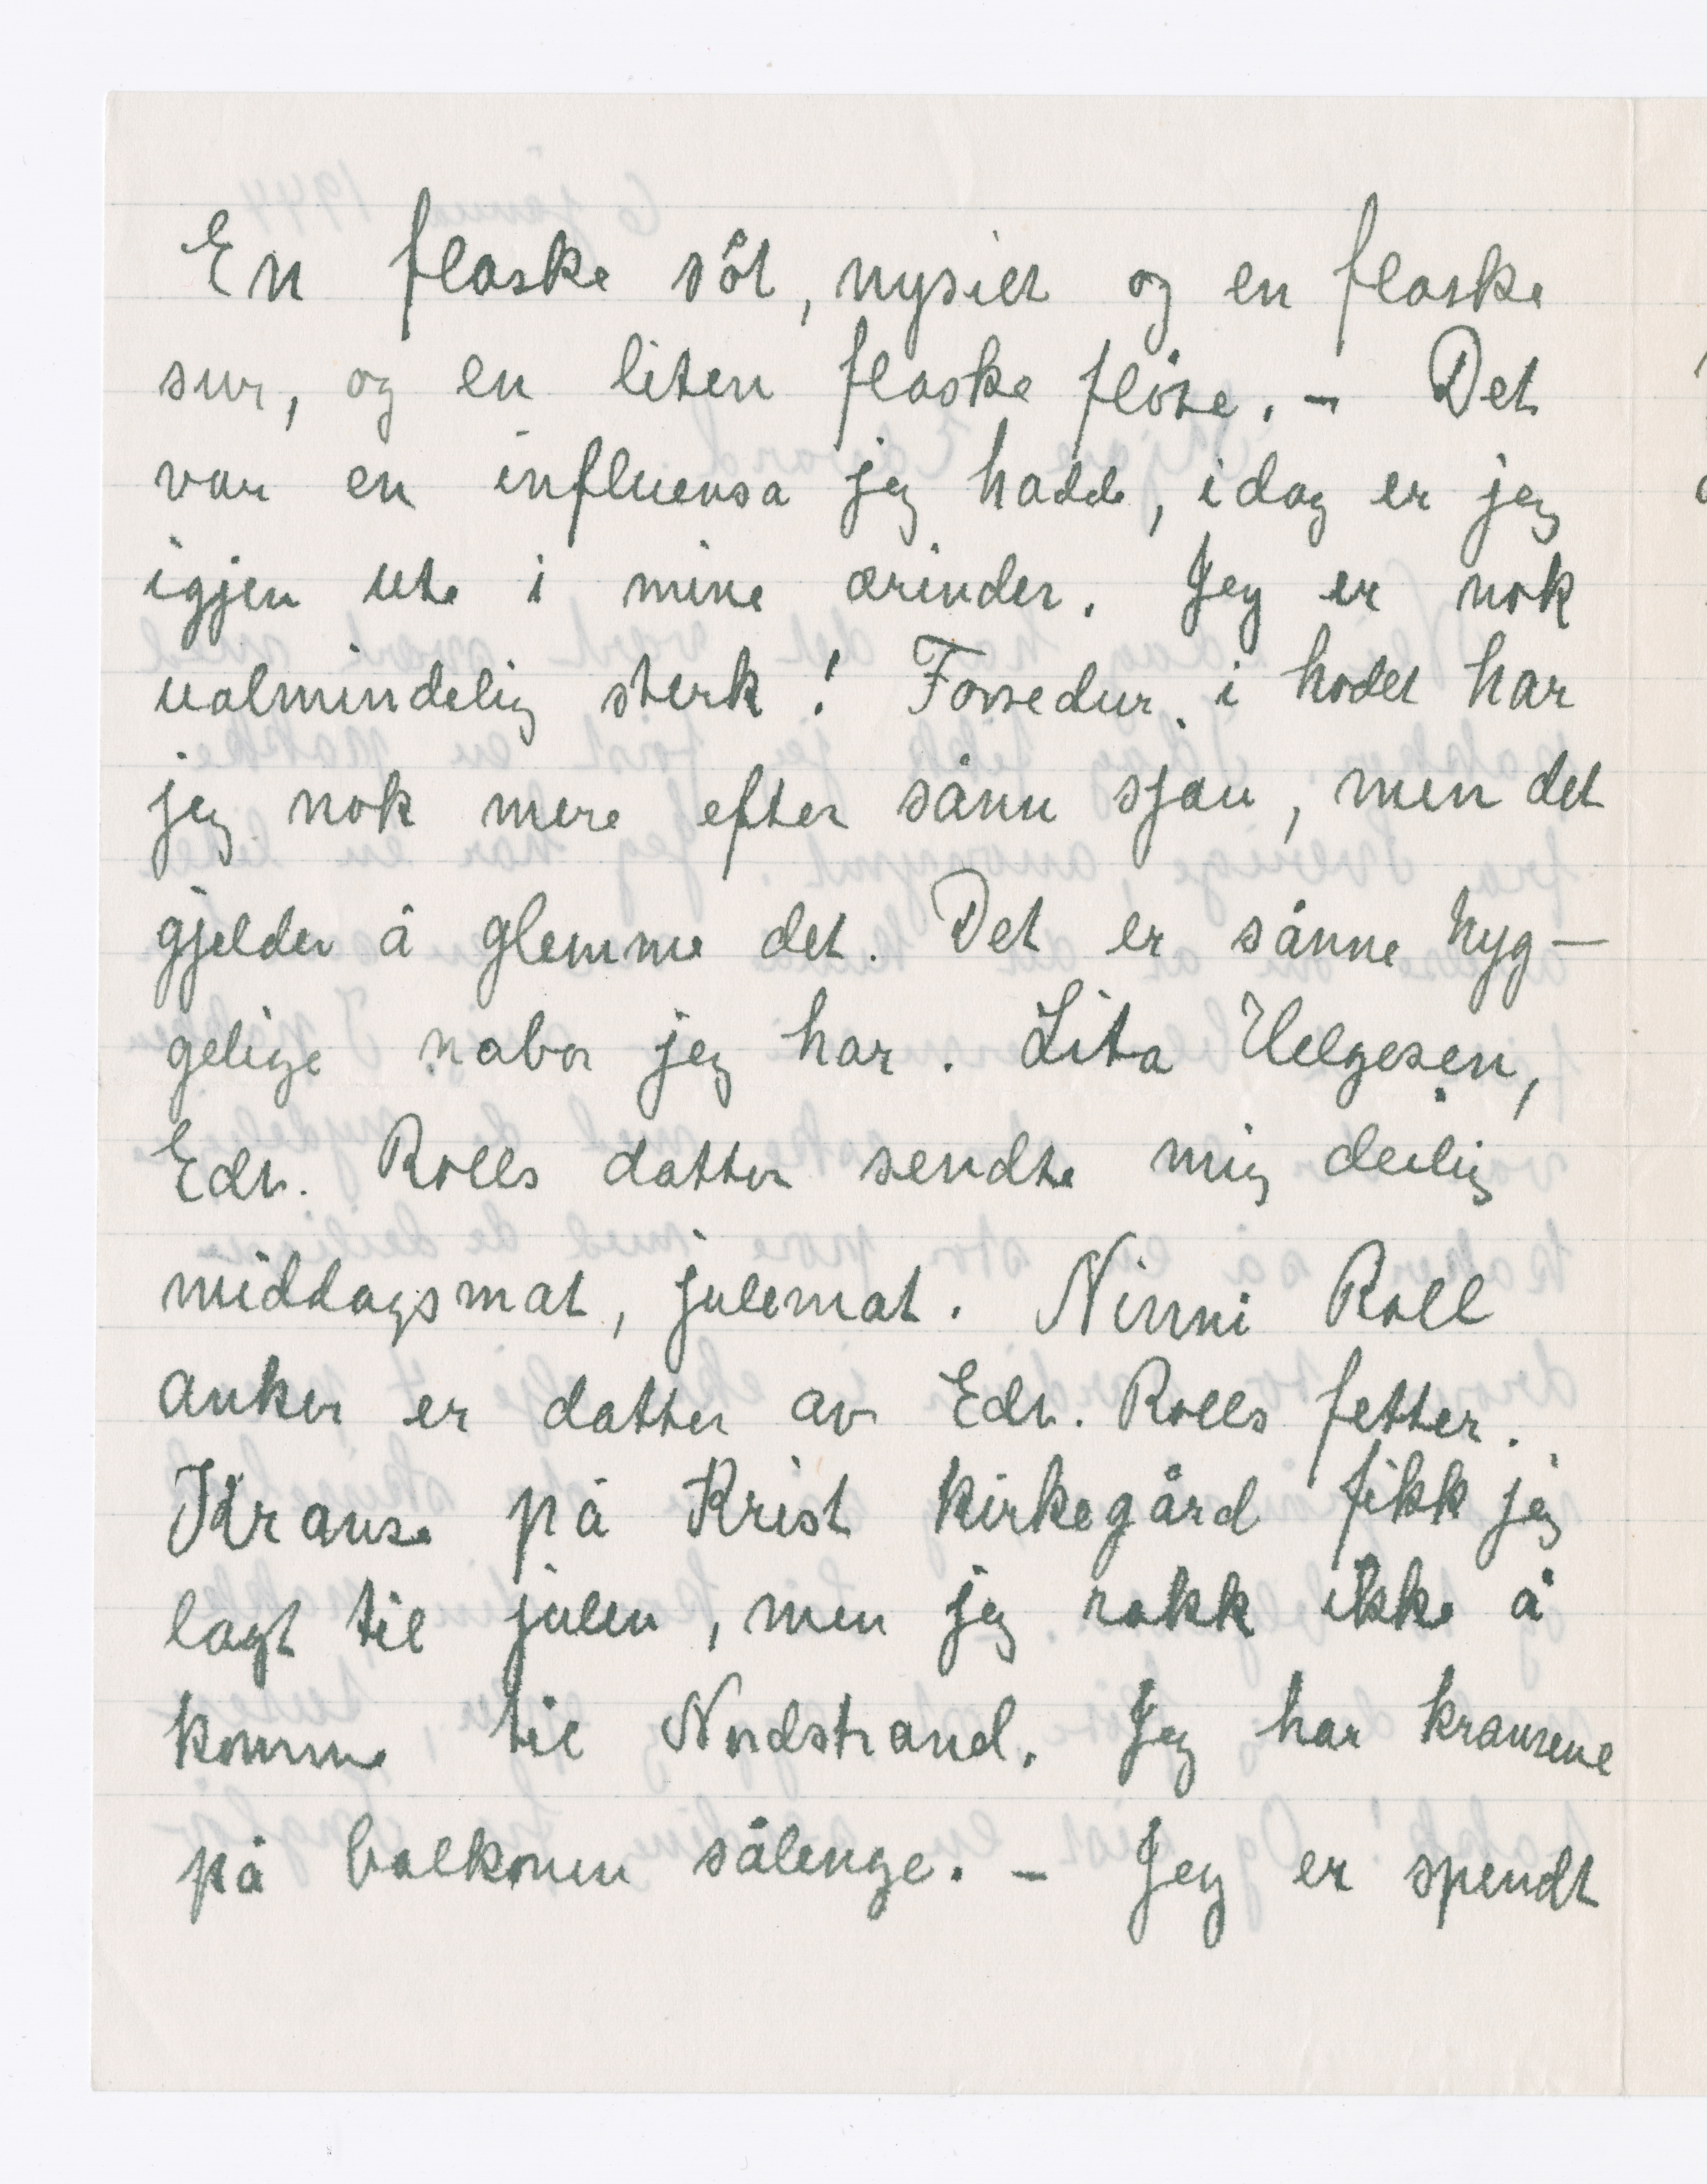 En flaske söt, nysilt og en flaske
sur, og en liten flaske flöte. – Det
var en influensa jeg hadde, idag er jeg
igjen ute i mine ærinder. Jeg er nok
ualmindelig sterk! Fossedur i hodet har
jeg nok mere efter sånn sjau, men det
gjelder å glemme det. Det er sånne hyg–
gelige nabor jeg har. Lita Helgesen,
Edv. Rolls datter sendte mig deilig
middagsmat, julemat. Ninni Roll
anker er datter av Edv. Rolls fetter.
Kranse på Krist kirkegård fikk jeg
lagt til julen, men jeg rakk ikke å
komme til Nordstrand. Jeg har kransene
på balkonen sålenge. – Jeg er spendt